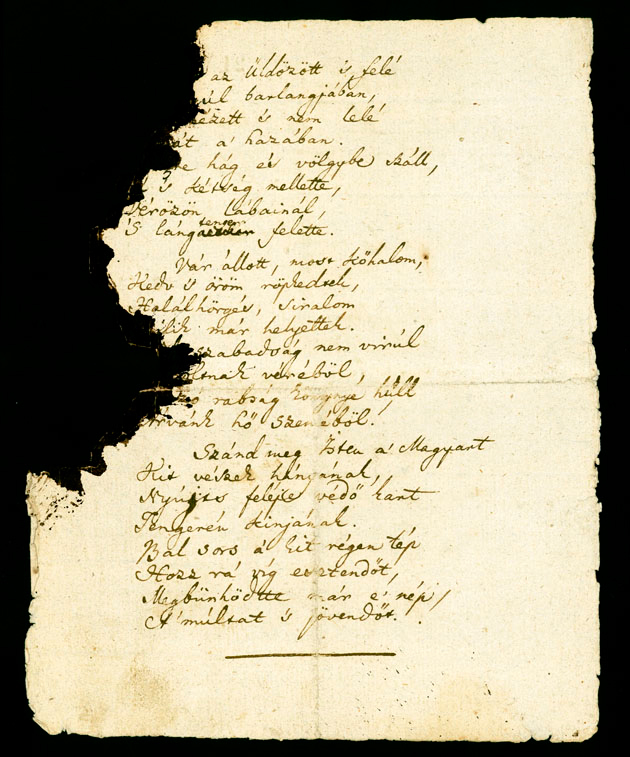 az üldözött is felé
barlangjában,
nézett is nem lelé
át a' hazában.
re hág és völgybe száll,
is kétség mellette,
Vérözön lábainál,
'S lángtenger felette.
Vár állott, most kőhalom,
Kedv is öröm röpkedtek,
Halálhörgés, siralom
már helyettek.
szabadság nem virúl
véréből,
rabság könnye hűll
árvánk hő szeméből!
Szánd meg Isten a' Magyart
Kit vészek hányának,
Nyújts feléje védő kart
Tengerén kínjának.
Bal sors a' kit régen tép
Hozz rá víg esztendőt,
Megbünhödte már e' nép,
A' múltat is jövendőt.